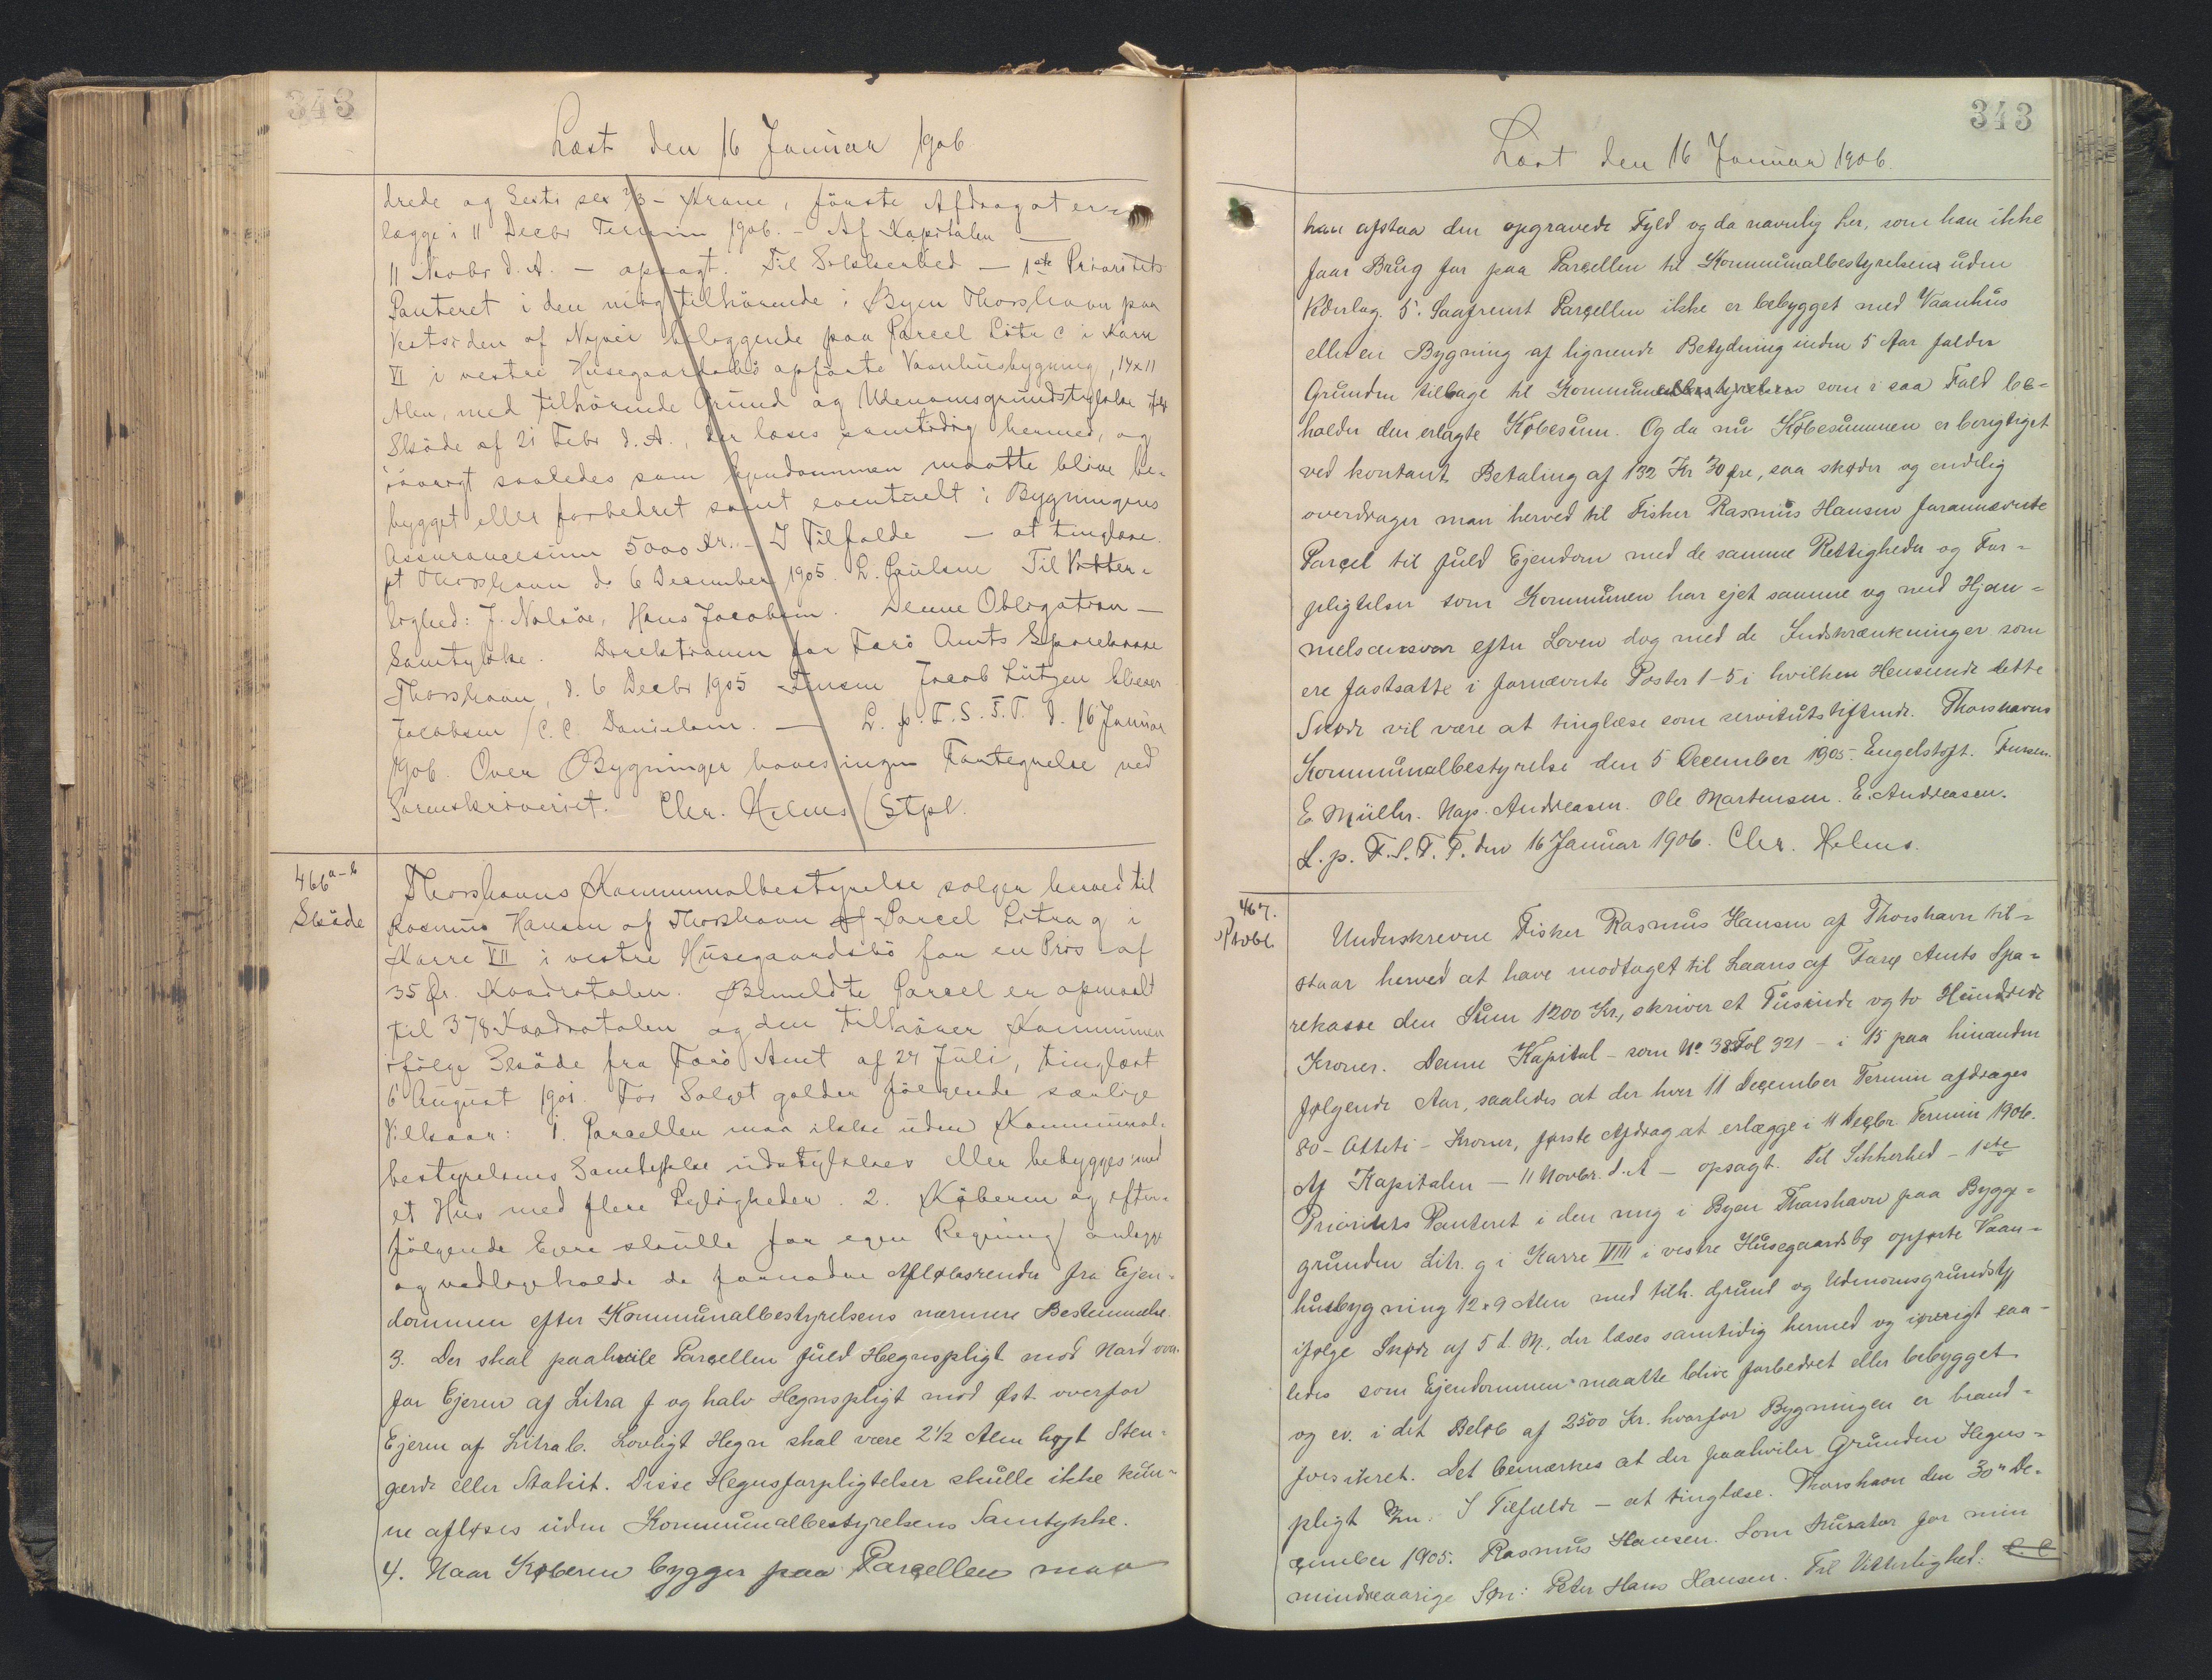 343
Læst den 16 Januar 1906
drede og Seksti sex 2/3 - Krone, første Afdrag at er=
lægge i 11 Decbr Termin 1906. - Af Kapitalen —
11 Novbr d. A. — opsagt. Til Sikkerhed — 1ste Prioritets
Panteret i den mig tilhørende i Byen Thorshavn paa
Vestsiden af Nyvei beliggende paa Parcel Litr c i Karre
VI i vestre Husegaardsbø opførte Vaanhusbygning, 14x11
Alen, med tilhørende Grund og Udenomsgrundstykke ifl
Skøde af 21 Febr d. A. der læses samtidig hermed, og
iøvrigt saaledes som Ejendommen maatte blive be-
bygget eller forbedret samt eventuelt i Bygningens
Assurancesum 5000 Kr. - I Tilfælde — at tinglæse.
pt Thorshavn d. 6 December 1905. L. Poulsen Til Vitter-
lighed: J. Nolsöe, Hans Jacobsen. Denne Obligation —
Samtykke. Direktionen for Færø Amts Sparekasse
Thorshavn, d. 6 Decbr 1905 Finsen Jacob Lützen
Jacobsen / C. C. Danielsen. — L. p. F. S. F. T. d. 16 Januar
1906. Over Bygninger haves ingen Fortegnelse ved
Sorenskriveriet. Chr. Helms (Stpl.
466 a-b
Skøde
Thorshavns Kommunalbestyrelse sælger herved til
Rasmus Hansen af Thorshavn Parcel Litra g i
Karre VII i vestre Husegaardsbø for en Pris af
35 Ør. Kvadratalen. Bemeldte Parcel er opmaalt
til 378 Kvadratalen og den tilhører Kommunen
ifølge Skøde fra Færø Amt af 24 Juli, tinglæst
6 August 1901. For Salget gælder følgende særlige
Vilkaar: 1. Parcellen maa ikke uden Kommunal-
bestyrelsens Samtykke udstykkes eller bebygges med
et Hus med flere Lejligheder. 2. Køberen og efter-
følgende Ejere skulle for egen Regning anlægge
og vedligeholde de fornødne Afløbsrender fra Ejen-
dommen efter Kommunalbestyrelsens nærmere Bestemmelse.
3. Der skal paahvile Parcellen fuld Hegnspligt mod Nord over
for Ejeren af Litra f og halv Hegnspligt mod Øst overfor
Ejeren af Litra b. Lovligt Hegn skal være 2 1/2 Alen højt Sten-
gærde eller Stakit. Disse Hegnsforpligtelser skulle ikke kun-
ne afløses uden Kommunalbestyrelsens Samtykke.
4. Naar Køberen bygger paa Parcellen maa
343
Læst den 16 Januar 1906.
han afstaa den opgravede Fyld og da navnlig Ler, som han ikke
faar Brug for paa Parcellen til Kommunalbestyrelsen uden
Vederlag. 5. Saafremt Parcellen ikke er bebygget med Vaanhus
eller en Bygning af lignende Betydning inden 5 Aar falder
Grunden tilbage til Kommunalbestyrelsen som i saa Fald be=
holder den erlagte Købesum. Og da nu Købesummen er berigtiget
ved kontant Betaling af 132 Kr 30 Øre, saa skøder og endelig
overdrager man herved til Fisker Rasmus Hansen forannævnte
Parcel til fuld Ejendom med de samme Rettigheder og For=
pligtelser som Kommunen har ejet samme og med Hjem=
melsansvar efter Loven dog med de Indskrænkninger som
ere fastsatte i fornævnte Poster 1-5 i hvilken Henseende dette
Skøde vil være at tinglæse som servitutstiftende. Thorshavns
Kommunalbestyrelse den 5 December 1905. Engelstoft. Finsen.
E. Müller. Nap. Andreasen. Ole Mortensen. E. Andreasen.
L. p. F. S. F. T. den 16 Januar 1906. Chr. Helms.
467.
Ptobl.
Underskrevne Fisker Rasmus Hansen af Thorshavn til=
staar herved at have modtaget til Laans af Færø Amts Spa=
rekasse den Sum 1200 Kr., skriver et Tusinde og to Hundrede
Kroner. Denne Kapital - som No 38 Fol 321 - i 15 paa hinanden
følgende Aar, saaledes at der hver 11 December Termin afdrages
80 - Otteti - Kroner, første Afdrag at erlægge i 11 Decbr Termin 1906.
Af Kapitalen — 11 Novbr. d. A — opsagt. Til Sikkerhed - 1ste
Prioritets Panteret i den mig i Byen Thorshavn paa Bygge=
grunden Litr. g i Karre VIII i vestre Husegaardsbø opførte Vaan=
husbygning 12x9 Alen med tilh. Grund og Udenomsgrundstk
ifølge Skøde af 5 d. M., der læses samtidig hermed og iøvrigt saa=
ledes som Ejendommen maatte blive forbedret eller bebygget
og ev. i det Beløb af 2500 Kr. hvorfor Bygningen er brand=
forsikret. Det bemærkes at der paahviler Grunden Hegns=
pligt m. I Tilfælde - at tinglæse. Thorshavn den 30" De-
cember 1905. Rasmus Hansen. Som Kurator for min
mindreaarige Søn: Peter Hans Hansen. Til Vitterlighed: C. C.